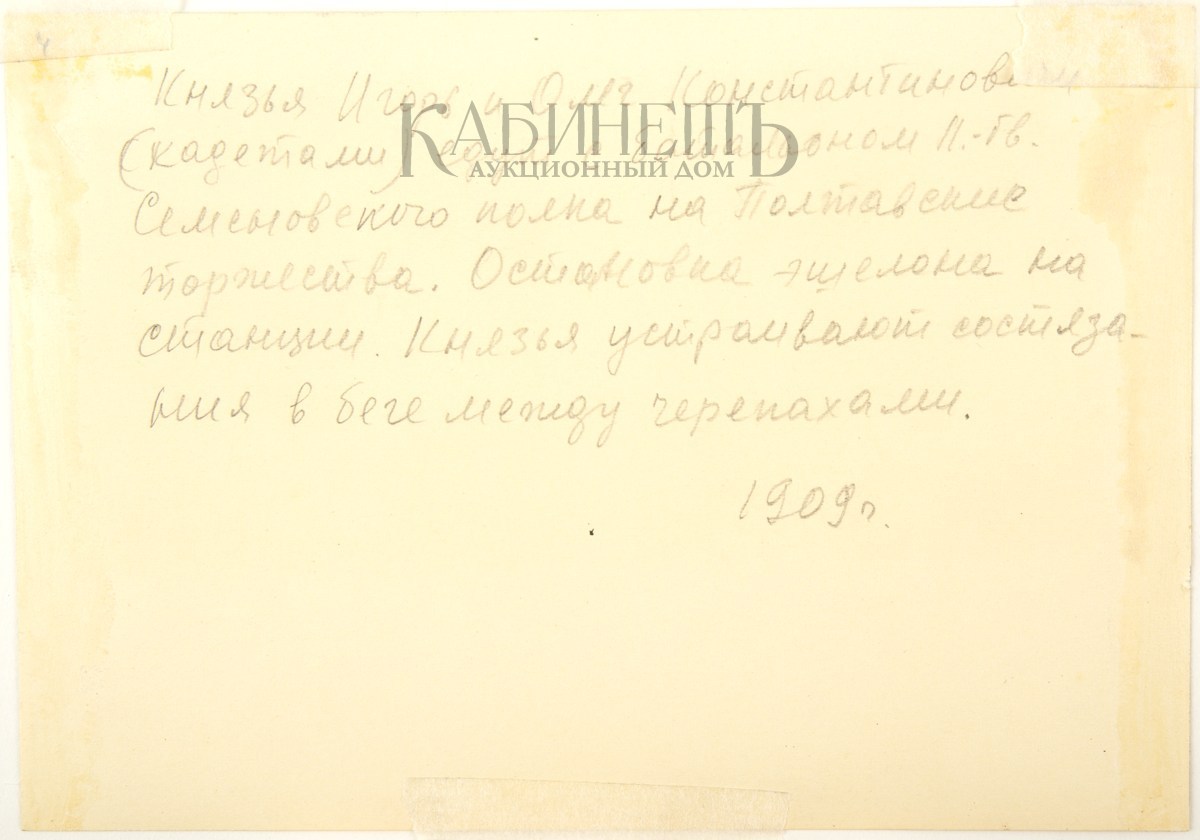 Князья Игорь и Олег Константиновичи
(кадетами) едут с батальоном Л.-Гв.
Семеновского полка на Полтавские
торжества. Остановка эшелона на
станции. Князья устраивают состяза-
ния в беге между черепахами.
1909 г.
КАБИНЕТЪ
АУКЦИОННЫЙ ДОМ